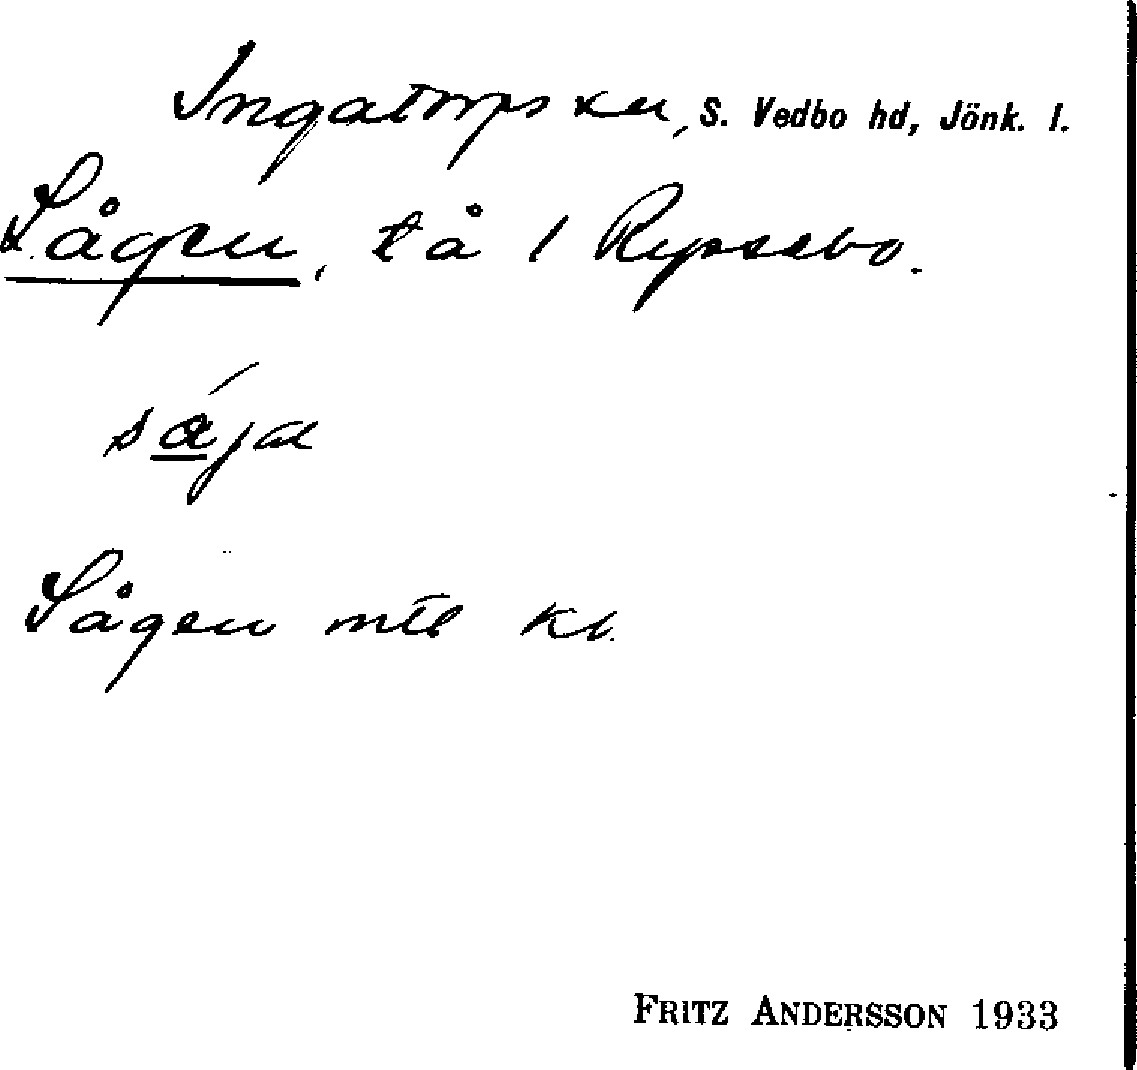 Ingatorps sn, S. Vedbo hd, Jönk. l.
Sågen, tå / Rypsebo.
säja
Sågen mtl kl.
FRITZ ANDERSSON 1933